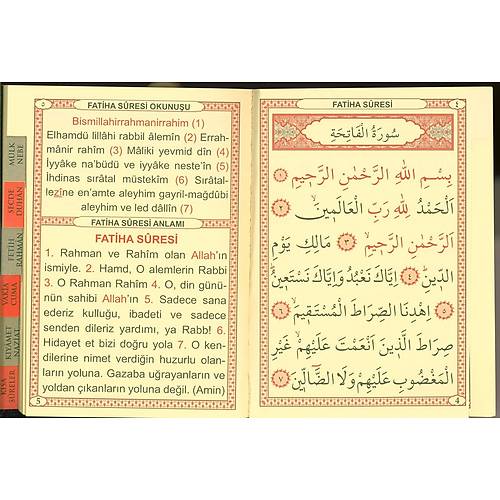 MÜLK
NEBE
SECDE
DUHAN
FETİH
RAHMAN
VAKIA
CUMA
KIYAMET
NAZİAT
KISA
SURELER
٥
FATİHA SÛRESİ OKUNUŞU
Bismillahirrahmanirrahim (1)
Elhamdü lillâhi rabbil âlemîn (2) Errah-
mânir rahîm (3) Mâliki yevmid dîn (4)
İyyâke na'büdü ve iyyâke neste'în (5)
İhdinas sırâtal müstekîm (6) Sırâtal-
lezîne en'amte aleyhim gayril-mağdûbi
aleyhim ve led dâllîn (7)
FATİHA SÛRESİ ANLAMI
FATİHA SÛRESİ
1. Rahman ve Rahîm olan Allah'ın
ismiyle. 2. Hamd, O alemlerin Rabbi
3. O Rahman Rahîm 4. O, din günü-
nün sahibi Allah'ın 5. Sadece sana
ederiz kulluğu, ibadeti ve sadece
senden dileriz yardımı, ya Rabb! 6.
Hidayet et bizi doğru yola 7. O ken-
dilerine nimet verdiğin huzurlu olan-
ların yoluna. Gazaba uğrayanların ve
yoldan çıkanların yoluna değil. (Amin)
5
FATİHA SÛRESİ
٤
سُورَةُ الْفَاتِحَةِ
بِسْمِ اللّٰهِ الرَّحْمٰنِ الرَّحٖيمِ ١
اَلْحَمْدُ لِلّٰهِ رَبِّ الْعَالَمٖينَۙ ٢
اَلرَّحْمٰنِ الرَّحٖيمِۙ ٣ مَالِكِ يَوْمِ
الدّٖينِۜ ٤ اِيَّاكَ نَعْبُدُ وَاِيَّاكَ نَسْتَعٖينُۜ
٥ اِهْدِنَا الصِّرَاطَ الْمُسْتَقٖيمَۙ ٦
صِرَاطَ الَّذٖينَ اَنْعَمْتَ عَلَيْهِمْۙ غَيْرِ
الْمَغْضُوبِ عَلَيْهِمْ وَلَا الضَّٓالّٖينَ ٧
4